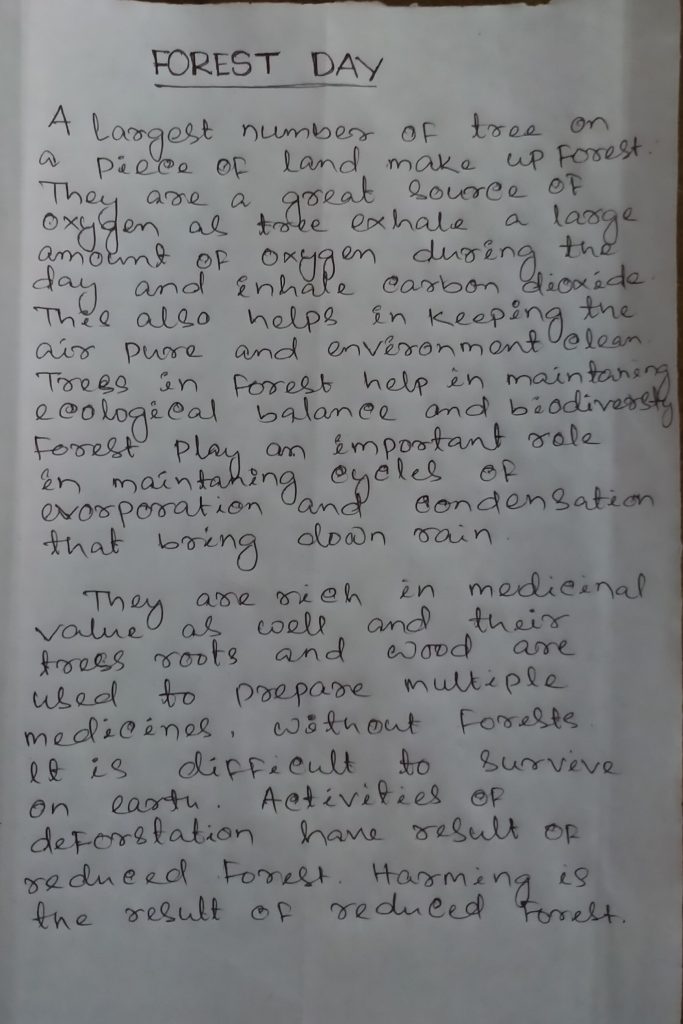 FOREST DAY
A largest number of tree on
a piece of land make up forest.
They are a great source of
oxygen as tree exhale a large
amount of oxygen during the
day and inhale carbon dioxide.
This also helps in keeping the
air pure and environment clean.
Trees in forest help in maintaning
ecological balance and biodiversty
Forest play an important role
in maintaning cycles of
evorporation and condensation
that bring down rain.
They are rich in medicinal
value as well and their
tress roots and wood are
used to prepare multiple
medicines, without forests.
It is difficult to survive
on earth. Activities of
deforstation have result of
reduced forest. Harming is
the result of reduced forest.